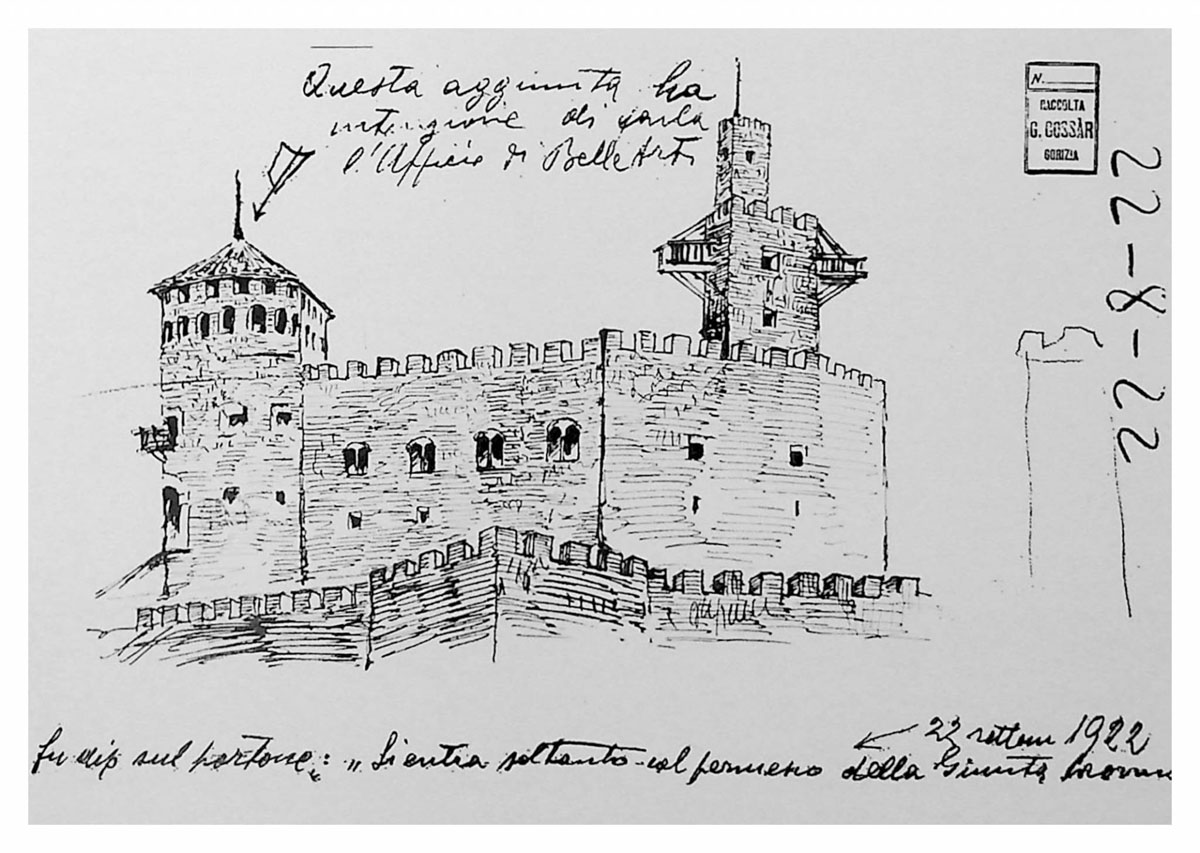 Questa aggiunta ha
intenzione di farla
l'Ufficio di Belle Arti
N.
RACCOLTA
G. COSSÀR
GORIZIA
22-8-22
22 settem 1922
fu dip sul portone: „Si entra soltanto col permesso della Giunta